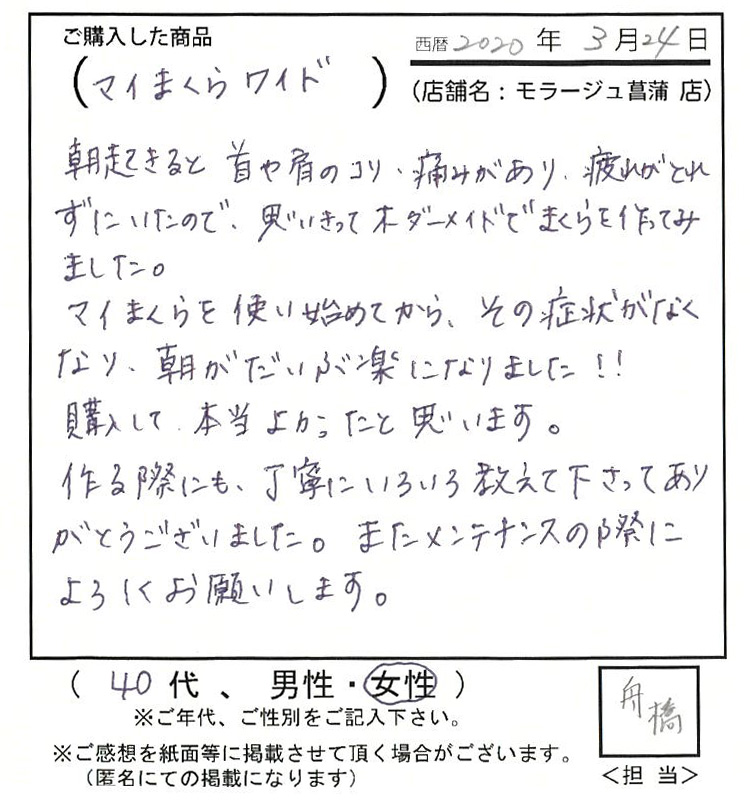 ご購入した商品
西暦2020年 3月24日
(マイまくらワイド)
(店舗名：モラージュ菖蒲 店)
朝起きると首や肩のコリ・痛みがあり、疲れがとれ
ずにいたので、思いきってオーダーメイドでまくらを作ってみ
ました。
マイまくらを使い始めてから、その症状がなく
なり、朝がだいぶ楽になりました!!
購入して本当よかったと思います。
作る際にも、丁寧にいろいろ教えて下さってあり
がとうございました。またメンテナンスの際に
よろしくお願いします。
( 40代、男性・女性 )
※ご年代、ご性別をご記入下さい。
舟橋
※ご感想を紙面等に掲載させて頂く場合がございます。
(匿名にての掲載になります)
＜担 当＞